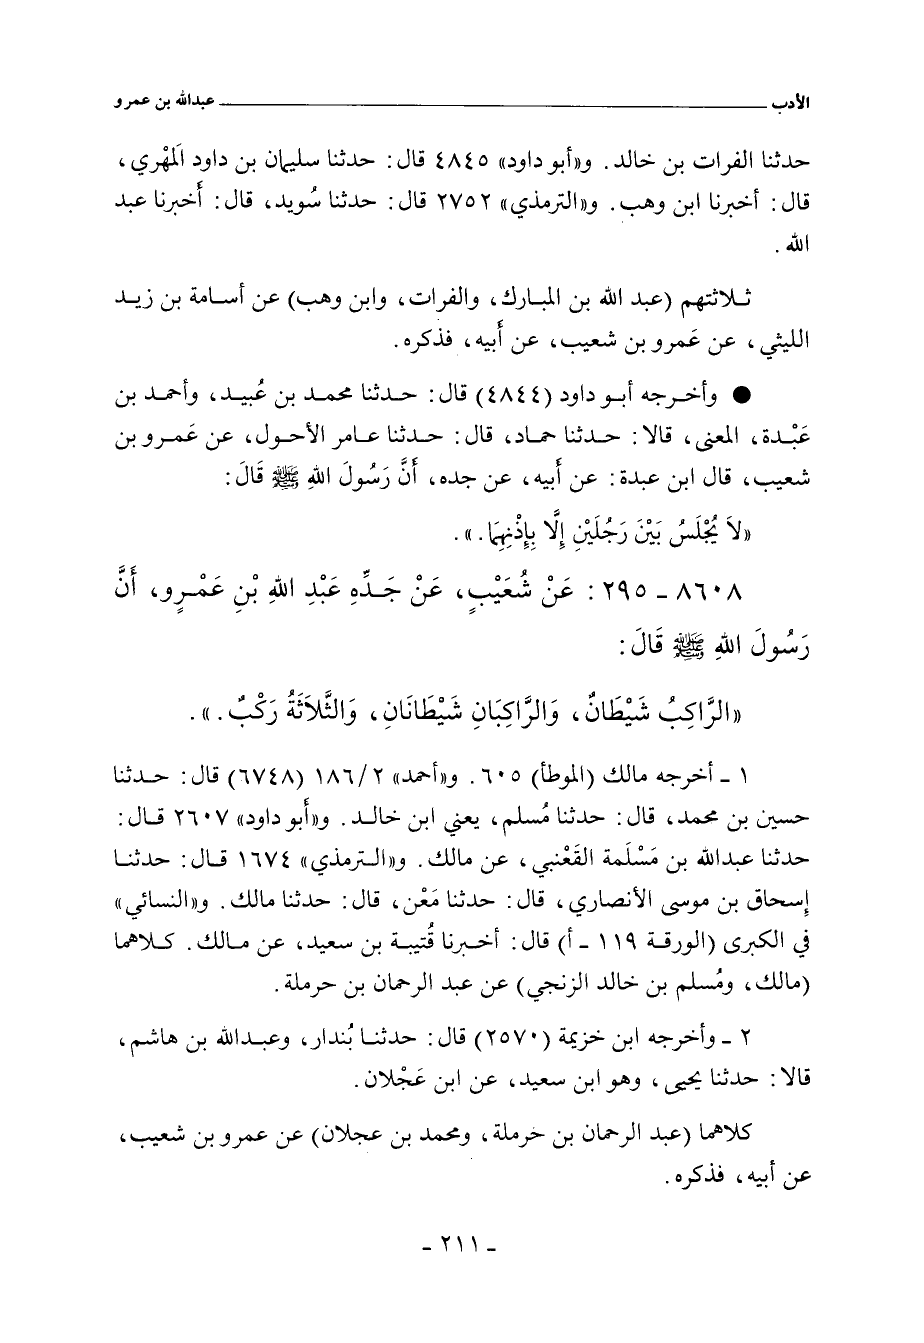 الأدب ـــــــ عبدالله بن عمرو
حدثنا الفرات بن خالد. و«أبو داود» ٤٨٤٥ قال: حدثنا سليمان بن داود المَهْري،
قال: أخبرنا ابن وهب. و«الترمذي» ٢٧٥٢ قال: حدثنا سُويد، قال: أَخبرنا عبد
الله.
ثلاثتهم (عبد الله بن المبارك، والفرات، وابن وهب) عن أسامة بن زيد
الليثي، عن عَمرو بن شعيب، عن أَبيه، فذكره.
● وأخرجه أبو داود (٤٨٤٤) قال: حدثنا محمد بن عُبيد، وأحمد بن
عَبْدة، المعنى، قالا: حدثنا حماد، قال: حدثنا عامر الأحول، عن عَمرو بن
شعيب، قال ابن عبدة: عن أَبيه، عن جده، أَنَّ رَسُولَ اللهِ ﷺ قَالَ:
«لاَ يُجْلَسُ بَيْنَ رَجُلَيْنِ إِلَّا بِإِذْنِهِمَا.».
٨٦٠٨ ـ ٢٩٥: عَنْ شُعَيْبٍ، عَنْ جَدِّهِ عَبْدِ اللهِ بْنِ عَمْرٍو، أَنَّ
رَسُولَ اللهِ ﷺ قَالَ:
«الرَّاكِبُ شَيْطَانٌ، وَالرَّاكِبَانِ شَيْطَانَانِ، وَالثَّلاَثَةُ رَكْبٌ.».
١ ـ أخرجه مالك (الموطأ) ٦٠٥. و«أحمد» ١٨٦/٢ (٦٧٤٨) قال: حدثنا
حسين بن محمد، قال: حدثنا مُسلم، يعني ابن خالد. و«أَبو داود» ٢٦٠٧ قال:
حدثنا عبدالله بن مَسْلَمة القَعْنبي، عن مالك. و«الترمذي» ١٦٧٤ قال: حدثنا
إسحاق بن موسى الأنصاري، قال: حدثنا مَعْن، قال: حدثنا مالك. و«النسائي»
في الكبرى (الورقة ١١٩ ـ أ) قال: أخبرنا قُتيبة بن سعيد، عن مالك. كلاهما
(مالك، ومُسلم بن خالد الزنجي) عن عبد الرحمان بن حرملة.
٢ ـ وأخرجه ابن خزيمة (٢٥٧٠) قال: حدثنا بُندار، وعبدالله بن هاشم،
قالا: حدثنا يحيى، وهو ابن سعيد، عن ابن عَجْلان.
كلاهما (عبد الرحمان بن حرملة، ومحمد بن عجلان) عن عمرو بن شعيب،
عن أبيه، فذكره.
ـ ٢١١ ـ